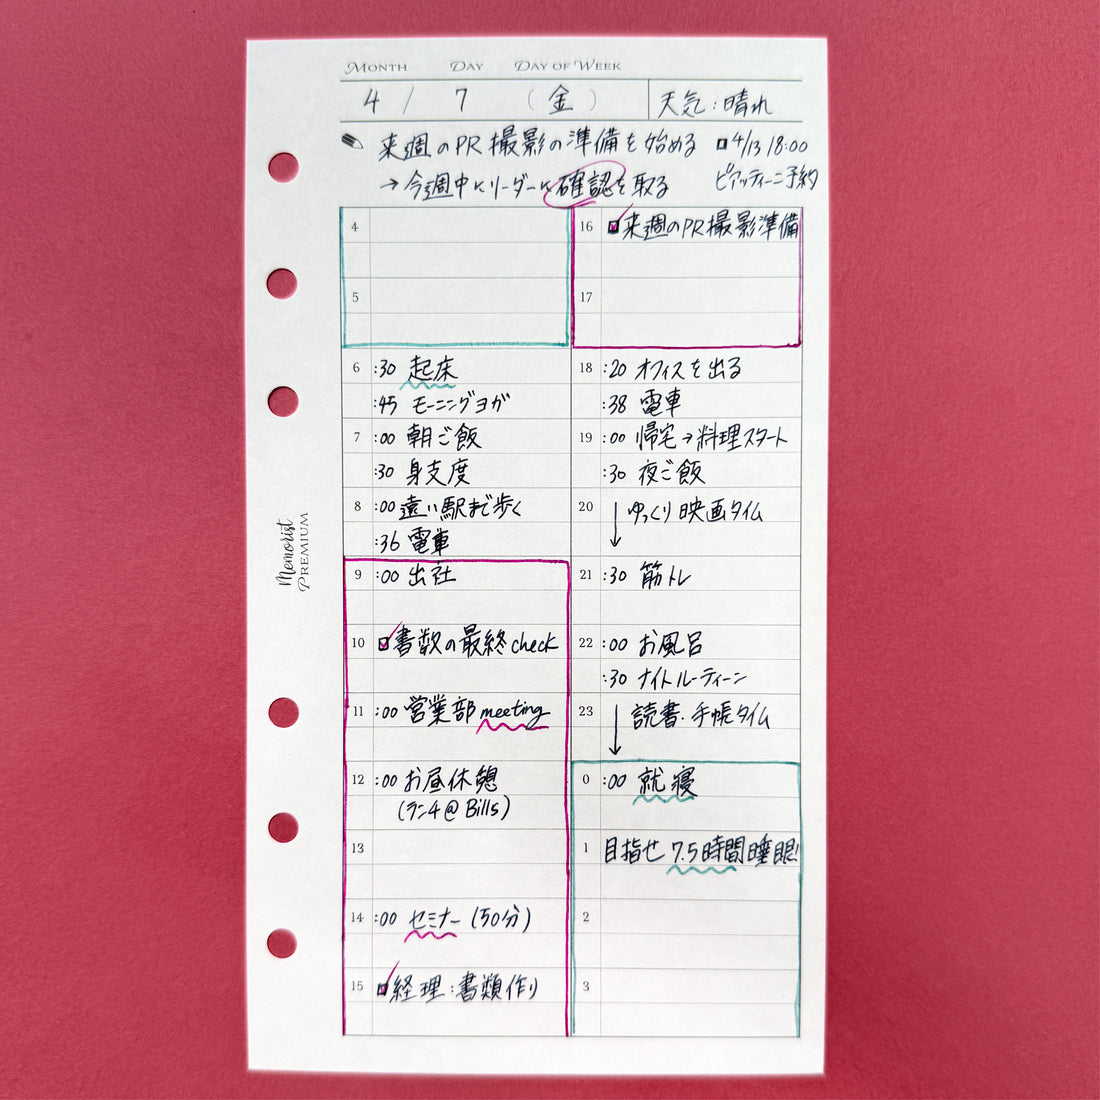 MONTH DAY DAY OF WEEK
4 / 7 (金) 天気:晴れ
来週のPR撮影の準備を始める
→今週中にリーダーに確認を取る
4/13 18:00
ピアッティーニ予約
4
5
6 :30 起床
:45 モーニングヨガ
7 :00 朝ご飯
:30 身支度
8 :00 遠い駅まで歩く
:36 電車
9 :00 出社
10 ☑書数の最終check
11 :00 営業部meeting
12 :00 お昼休憩
(ランチ@Bills)
13
14 :00 セミナー(50分)
15 ☑経理:書類作り
16 ☑来週のPR撮影準備
17
18 :20 オフィスを出る
:38 電車
19 :00 帰宅→料理スタート
:30 夜ご飯
20 ↓ ゆっくり映画タイム
21 :30 筋トレ
22 :00 お風呂
:30 ナイトルーティーン
23 ↓ 読書・手帳タイム
0 :00 就寝
1 目指せ7.5時間睡眠!
2
3
Memorist
PREMIUM